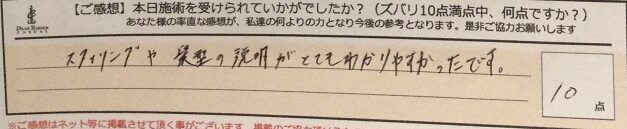 【ご感想】本日施術を受けられていかがでしたか？（ズバリ10点満点中、何点ですか？）
あなた様の率直な感想が、私達の何よりの力となり今後の参考となります。是非ご協力お願いします
DEAR BARBER
スタイリングや 髪型の説明がとてもわかりやすかったです。
10
点
※ご感想はネット等に掲載させて頂く事がございます。